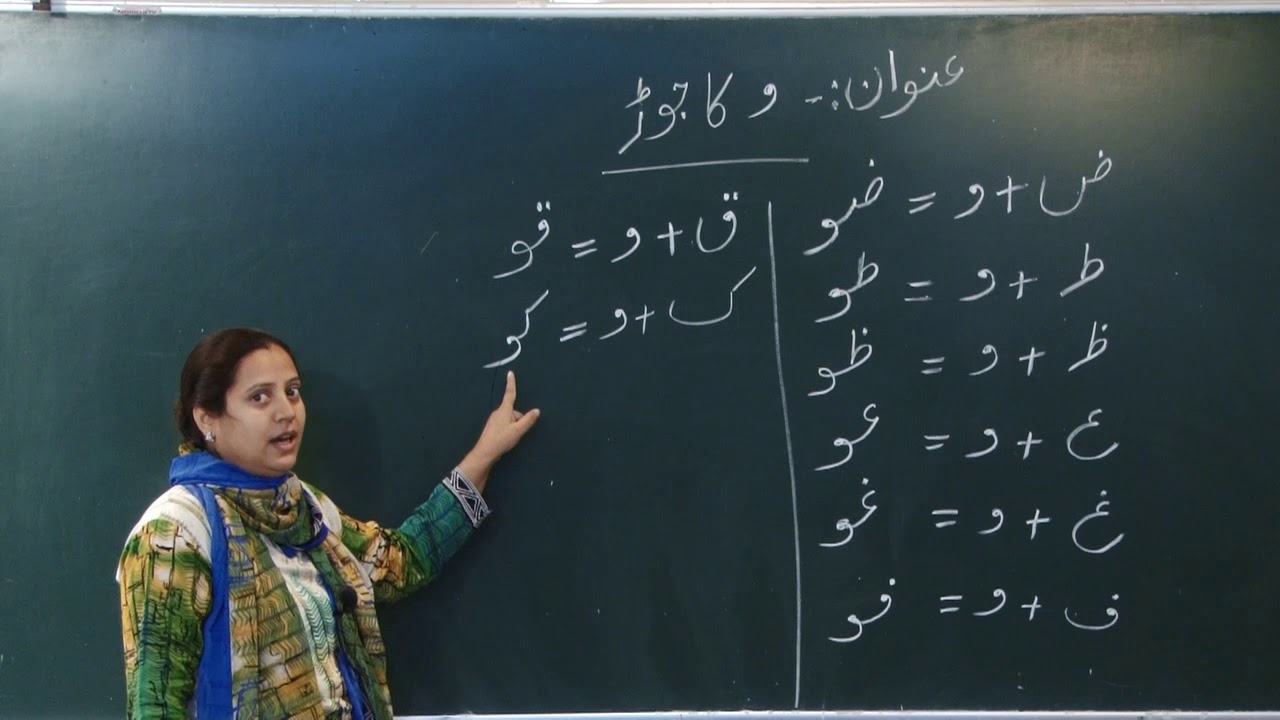 عنوان:- و کا جوڑ
ض + و = ضو
ط + و = طو
ظ + و = ظو
ع + و = عو
غ + و = غو
ف + و = فو
ق + و = قو
ک + و = کو